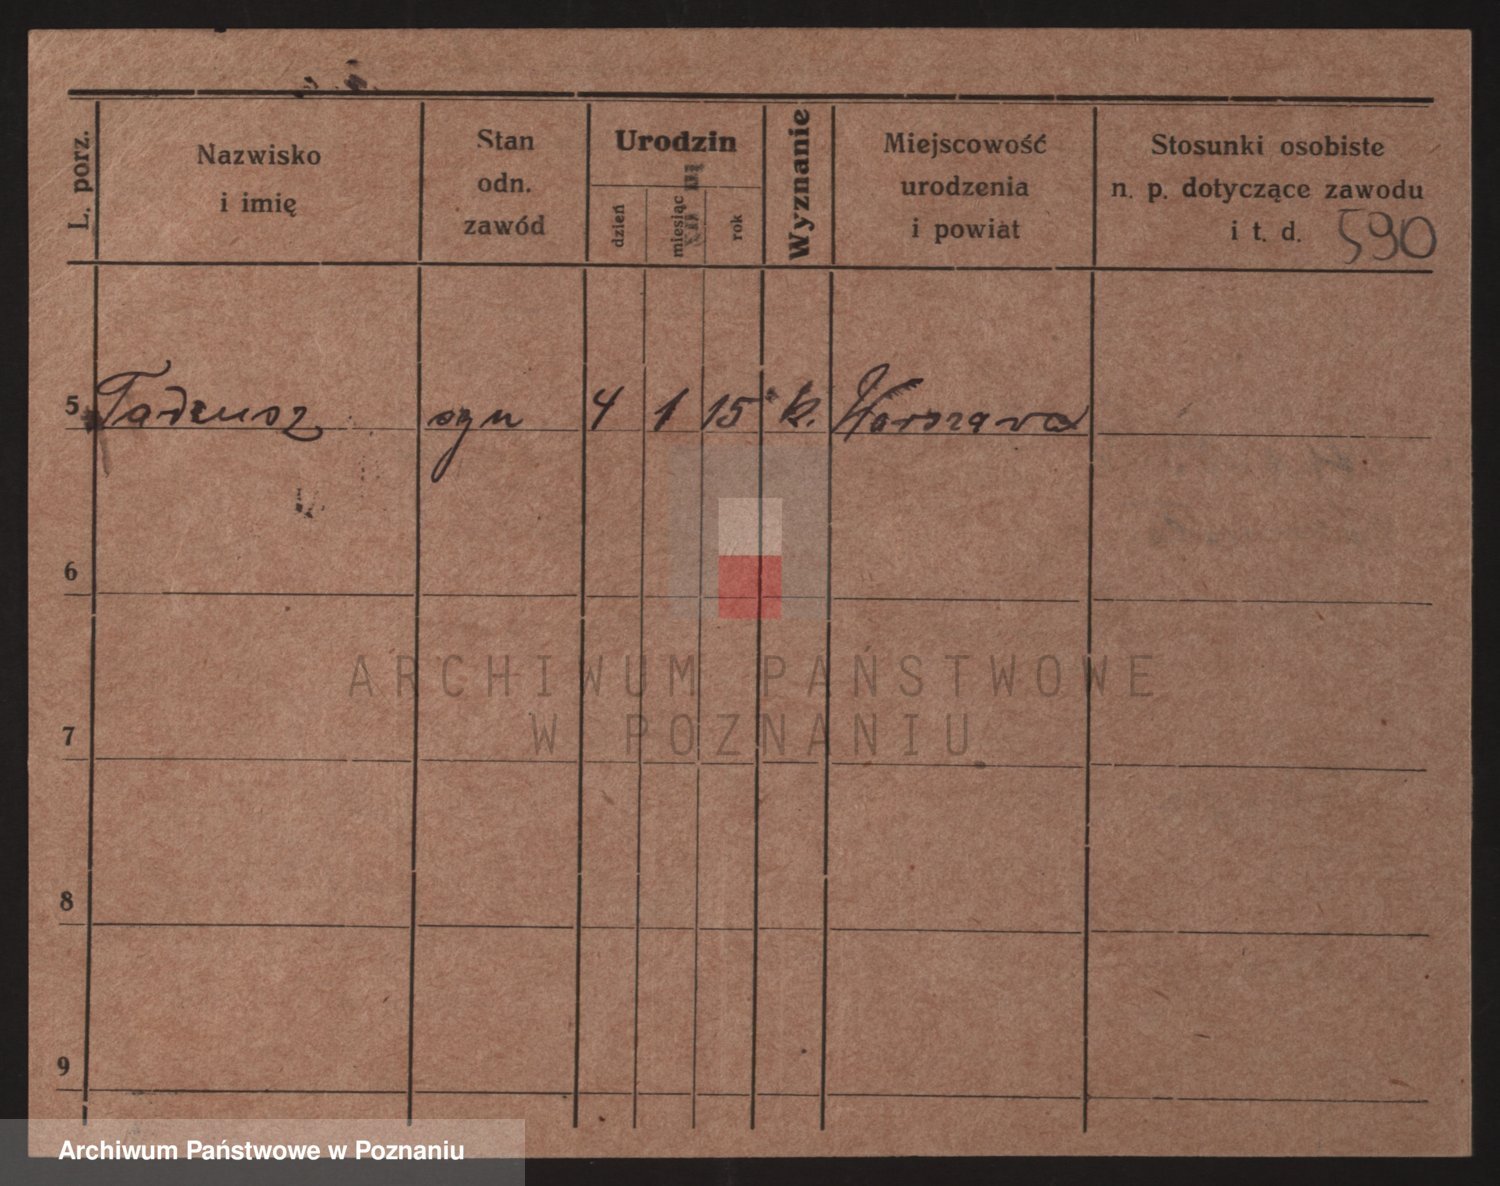 L. porz.
Nazwisko
i imię
Stan
odn.
zawód
Urodzin
dzień
miesiąc
rok
Wyznanie
Miejscowość
urodzenia
i powiat
Stosunki osobiste
n. p. dotyczące zawodu
i t. d. 590
5 Tadeusz syn 4 1 15 k. Warszawa
6
7
8
9
ARCHIWUM PAŃSTWOWE
W POZNANIU
Archiwum Państwowe w Poznaniu